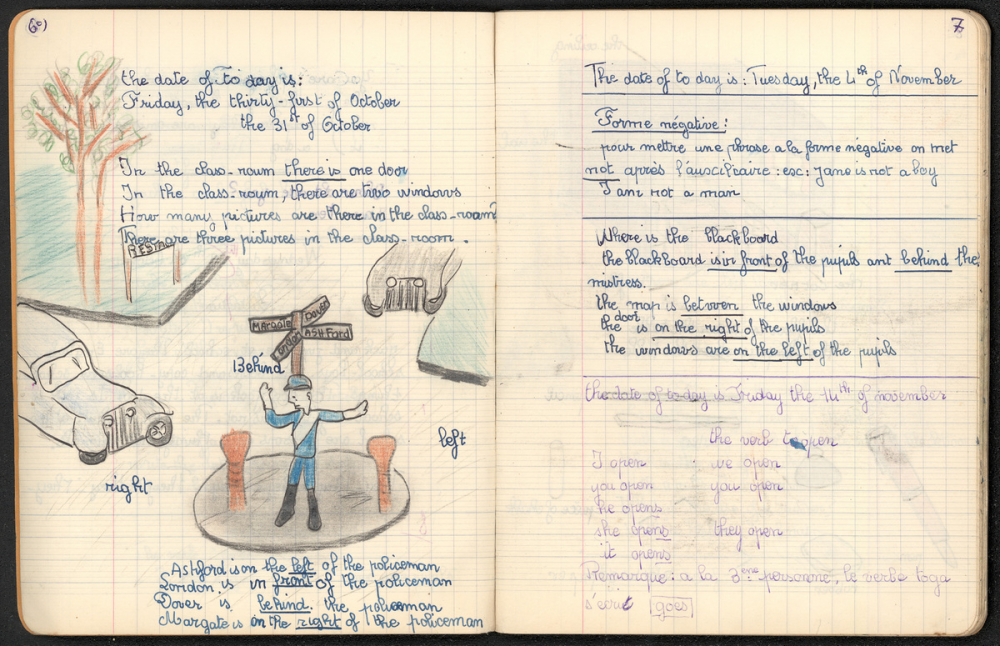 6)
the date of to day is:
Friday, the thirty-first of October
the 31st of October
In the class-roum there is one door
In the class-roum, there are two windows
How many pictures are there in the class-room
There are three pictures in the class-room.
MARGATE
Dover
London
ASHFord
Behind
left
right
Ashford is on the left of the policeman
London is in front of the policeman
Dover is behind the policeman
Margate is on the right of the policeman
7
The date of to day is: Tuesday, the 4th of November
Forme négative:
pour mettre une phrase a la forme négative on met
not après l'auxiliaire: esc: Jane is not a boy
I am not a man
Where is the blackboard
the blackboard is in front of the pupils ant behind the
mistress.
the map is between the windows
the door is on the right of the pupils
the windows are on the left of the pupils
the date of to-day is Friday the 14th of november
the verb to open
I open we open
you open you open
he opens
she opens they open
it opens
Remarque: a la 3ème personne, le verbe to go
s'écrit goes